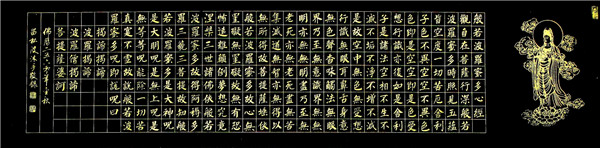 般若波羅蜜多心經
觀自在菩薩行深般若
波羅蜜多時照見五蘊
皆空度一切苦厄舍利
子色不異空空不異色
色即是空空即是色受
想行識亦復如是舍利
子是諸法空相不生不
滅不垢不淨不增不減
是故空中無色無受想
行識無眼耳鼻舌身意
無色聲香味觸法無眼
界乃至無意識界無無
明亦無無明盡乃至無
老死亦無老死盡無苦
集滅道無智亦無得以
無所得故菩提薩埵依
般若波羅蜜多故心無
罣礙無罣礙故無有恐
怖遠離顛倒夢想究竟
涅槃三世諸佛依般若
波羅蜜多故得阿耨多
羅三藐三菩提故知般
若波羅蜜多是大神咒
是大明咒是無上咒是
無等等咒能除一切苦
真實不虛故說般若波
羅蜜多咒即說咒曰
揭諦揭諦
波羅揭諦
波羅僧揭諦
菩提薩婆訶
沐手敬錄